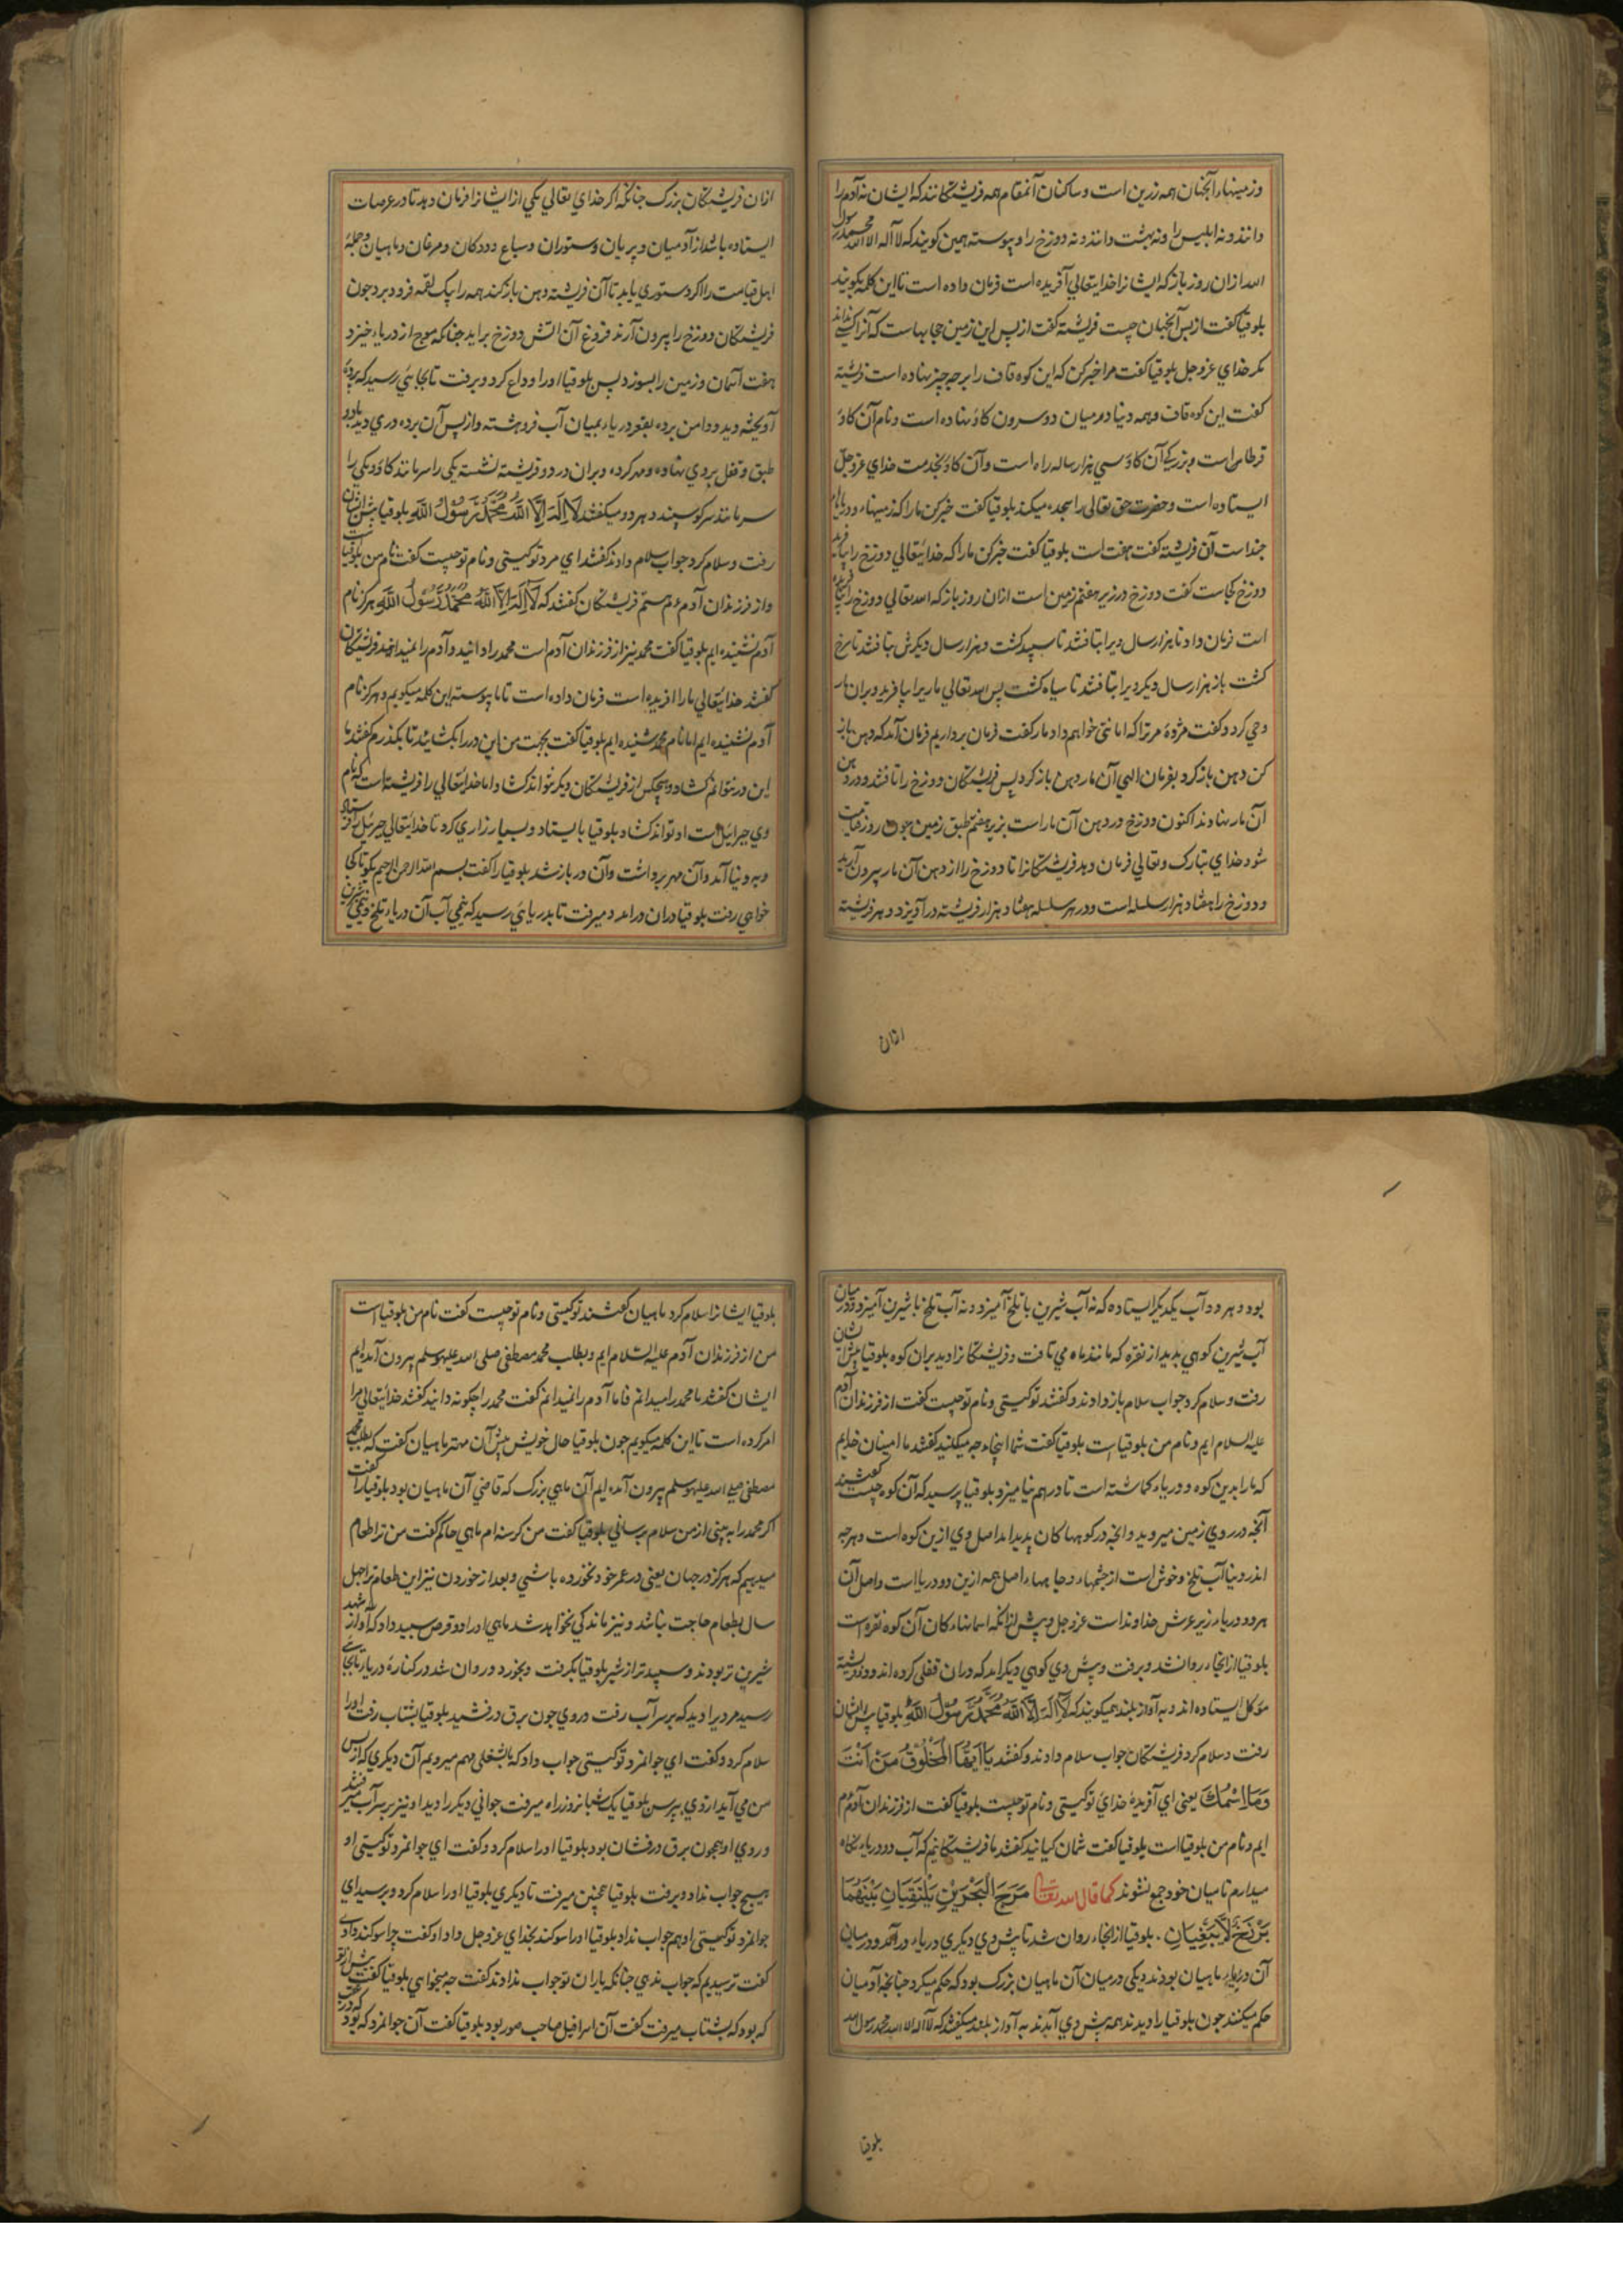 وزمینهاء آنجهان همه زرین است وساکنان آنمقام همه فریشتگانند که ایشان نه آدم را
دانند ونه ابلیس را ونه بهشت دانند ونه دوزخ را وپیوسته همین کویند که لا اله الا الله محمد رسول
الله ازان روز باز که ایشانرا خدایتعالي آفریده است فرمان داده است تا این کلمه بکویند
بلوقیا کفت از پس آنجهان چیست فریشته کفت از پس این زمین حجابهاست که آنرا کسی نداند
مکر خداي عزوجل بلوقیا کفت مرا خبر کن که این کوه قاف را بر چه چیز نهاده است فریشته
کفت این کوه قاف وهمه دنیا درمیان دو سرون کاو نهاده است ونام آن کاو
قرطاس است وبزرکي آن کاو سي هزار ساله راه است وآن کاو بخدمت خداي عزوجل
ایستاده است وحضرت حق تعالي را سجده میکند بلوقیا کفت خبر کن مارا که زمینهاء ودریاها
چند است آن فریشته کفت هفت است بلوقیا کفت خبر کن مارا که خدایتعالي دوزخ را
دوزخ کجاست کفت دوزخ در زیر هفتم زمین است ازان روز باز که الله تعالي دوزخ را
است فرمان داد تا هزار سال ویرا بتافتند تا سپید کشت وهزار سال دیکرش بتافتند تا سرخ
کشت باز هزار سال دیکر ویرا بتافتند تا سیاه کشت پس الله تعالي ماریرا بیافرید وبران مار
وحي کرد وکفت مژدهٔ مر ترا که امانتی خواهم داد مار کفت فرمان برداریم فرمان آمد که دهن باز
کن دهن باز کرد بفرمان الهي آن مار دهن باز کرد پس فریشتکان دوزخ را تافتند ودر دهن
آن مار نهادند اکنون دوزخ در دهن آن مار است بزیر هفتم طبق زمین چون روز قیامت
شود خداي تبارک وتعالي فرمان دهد فریشتکانرا تا دوزخ را از دهن آن مار بیرون آرند
ودوزخ را هفتاد هزار سلسله است ودر هر سلسله هفتاد هزار فریشته در آویزد وهر فریشته
ازان
ازان فریشتکان بزرک چنانکه اکر خداي تعالي یکي از ایشانرا فرمان دهد تا در عرصات
ایستاده باشد از آدمیان وپریان وستوران وسباع وددکان ومرغان وماهیان وجملهٔ
اهل قیامت را اکر دستوري یابد تا آن فریشته دهن باز کند همه را بیک لقمه فرو برد چون
فریشتکان دوزخ را بیرون آرند فروغ آن آتش دوزخ براید چنانکه موج از دریاء خیزد
هفت آسمان وزمین را بسوزد پس بلوقیا اورا وداع کرد وبرفت تا بجایي رسید که پردهٔ
آویخته دید ودامن پرده بقعر دریاء بمیان آب فروهشته واز پس آن پرده دري دید با دو
طبق وقفل بروي نهاده ومهر کرده وبران در دو فریشته نشسته یکی را سر مانند کاو ویکي را
سر مانند سر کوسپند وهر دو میکفتند لا اله الا الله محمد رسول الله بلوقیا پیش ایشان
رفت وسلام کرد جواب سلام دادند کفتند اي مرد تو کیستی ونام تو چیست کفت نام من بلوقیاست
واز فرزندان آدمم فریشتکان کفتند که لا اله الا الله محمد رسول الله هرکز نام
آدم نشنیده ایم بلوقیا کفت محمد نیز از فرزندان آدم است محمد را دانید وآدم را نمیدانید فریشتکان
کفتند خدایتعالي مارا افریده است فرمان داده است تا ما پیوسته این کلمه میکویم وهرکز نام
آدم نشنیده ایم اما نام محمد شنیده ایم بلوقیا کفت بجهت من این در را بکشائید تا بکذرم کفتند ما
این در نتوانم کشاد وهیچکس از فریشتکان دیکر نتواند کشاد اما خدایتعالي را فریشته است که نام
وي جبرائیل است او تواند کشاد بلوقیا بایستاد وبسیار زاري کرد تا خدایتعالي جبرئیل را فرستاد
وبه دنیا آمد وآن مهر برداشت وآن در باز شد بلوقیا را کفت بسم الله الرحمن الرحیم بکو تا کجا
خواهي رفت بلوقیا دران درامد ومیرفت تا بدریایي رسید که نیمي آب آن دریاء تلخ ونیمي شیرین
بود وهر دو آب یکدیکر ایستاده که نه آب شیرین با تلخ آمیزد ونه آب تلخ با شیرین آمیزد ودر میان
آب شیرین کوهي بدید از نقره که مانند ماه مي تافت وفریشتکانرا دید بران کوه بلوقیا پیش ایشان
رفت وسلام کرد جواب سلام باز دادند وکفتند تو کیستی ونام تو چیست کفت از فرزندان آدم
علیه السلام ایم ونام من بلوقیا است بلوقیا کفت شما اینجاء چه میکنید کفتند ما امینان خدایم
که مارا بدین کوه ودریاء کماشته است تا درهم نیامیزد بلوقیا پرسید که آن کوه چیست کفتند
آنچه در روي زمین میروید وانچه در کوهها کان پدید امد اصل وي ازین کوه است وهرچه
اندر دنیا آب تلخ وخوش است از چشمهاء وچاههاء اصل همه ازین دو دریا است واصل آن
هردو دریاء زیر عرش خداوند است عزوجل وپیش ازانکه اسمانهاء کان آن کوه نقره است
بلوقیا از انجاء روان شد وبرفت وپیش وي کوهي دیکر امد که دران قفلی کرده اند ودو فریشته
موکل ایستاده اند وبه آواز بلند همیکویند که لا اله الا الله محمد رسول الله بلوقیا پیش ایشان
رفت وسلام کرد فریشتکان جواب سلام دادند وکفتند یا ایها المخلوق من انت
وما اسمک یعنی اي آفریدهٔ خداي تو کیستی ونام تو چیست بلوقیا کفت از فرزندان آدم
ایم ونام من بلوقیا است بلوقیا کفت شمان کیانید کفتند ما فریشتکانیم که آب دو دریاء نکاه
میدارم تا میان خود جمع نشوند کما قال الله تعالی مَرَجَ الْبَحْرَیْنِ یَلْتَقِیَانِ بَیْنَهُمَا
بَرْزَخٌ لَا یَبْغِیَانِ . بلوقیا از انجاء روان شد تا پیش وي دیکري دریاء درآمد ودر میان
آن دریاء ماهیان بودند ویکی درمیان آن ماهیان بزرک بود که حکم میکرد چنانچه آدمیان
حکم میکنند چون بلوقیا را دیدند همه پیش وي آمدند به آواز بلند میکفتند که لا اله الا الله محمد رسول الله
بلوقیا
بلوقیا ایشانرا سلام کرد ماهیان کفتند تو کیستی ونام تو چیست کفت نام من بلوقیاست
من از فرزندان آدم علیه السلام ایم وبطلب محمد مصطفی صلی الله علیه وسلم بیرون آمده ایم
ایشان کفتند ما محمد را میدانم فاما آدم را نمیدانم کفت محمد را چکونه دانید کفتند خدایتعالي مرا
امر کرده است تا این کلمه میکویم چون بلوقیا حال خویش پیش آن مهتر ماهیان کفت که بطلب محمد
مصطفی صلی الله علیه وسلم بیرون آمده ایم آن ماهي بزرک که قاضي آن ماهیان بود بلوقیا را کفت
اکر محمد را به بینی از من سلام برساني بلوقیا کفت من کرسنه ام ماهي حاکم کفت من ترا طعام
میدهیم که هرکز در جهان یعنی در عمر خود نخورده باشي وبعد از خوردن نیز این طعام ترا چهل
سال بطعام حاجت نباشد ونیز ماندکی نخواهد شد ماهي اورا دو قرص سپید داد که
شیرین تر بودند وسپیدتر از شیر بلوقیا بکرفت وبخورد وروان شد در کنارهٔ دریا تا بجایي
رسید مردیرا دید که بر سر آب رفت وروي چون برق درفشید بلوقیا بشتاب رفت اورا
سلام کرد وکفت اي جوانمرد تو کیستی جواب داد که بشغلی مهم میرویم آن دیکري که از پس
من مي آید ازوي بپرس بلوقیا یک شبانروز راه میرفت جواني دیکر را دید او نیز بر سر آب میرفتند
وروي او همچون برق درفشان بود بلوقیا اورا سلام کرد وکفت اي جوانمرد تو کیستی او
هیچ جواب نداد وبرفت بلوقیا همچنین میرفت تا دیکري بلوقیا اورا سلام کرد وپرسید اي
جوانمرد تو کیستی او هم جواب نداد بلوقیا اورا سوکند بخداي عزوجل داد او کفت چرا سوکند دادي
کفت ترسیدیم که جواب ندهي چنانکه یاران تو جواب ندادند کفت چه میخواهي بلوقیا کفت پیش از تو
که بود که بشتاب میرفت کفت آن اسرافیل صاحب صور بود بلوقیا کفت آن جوانمرد که بود